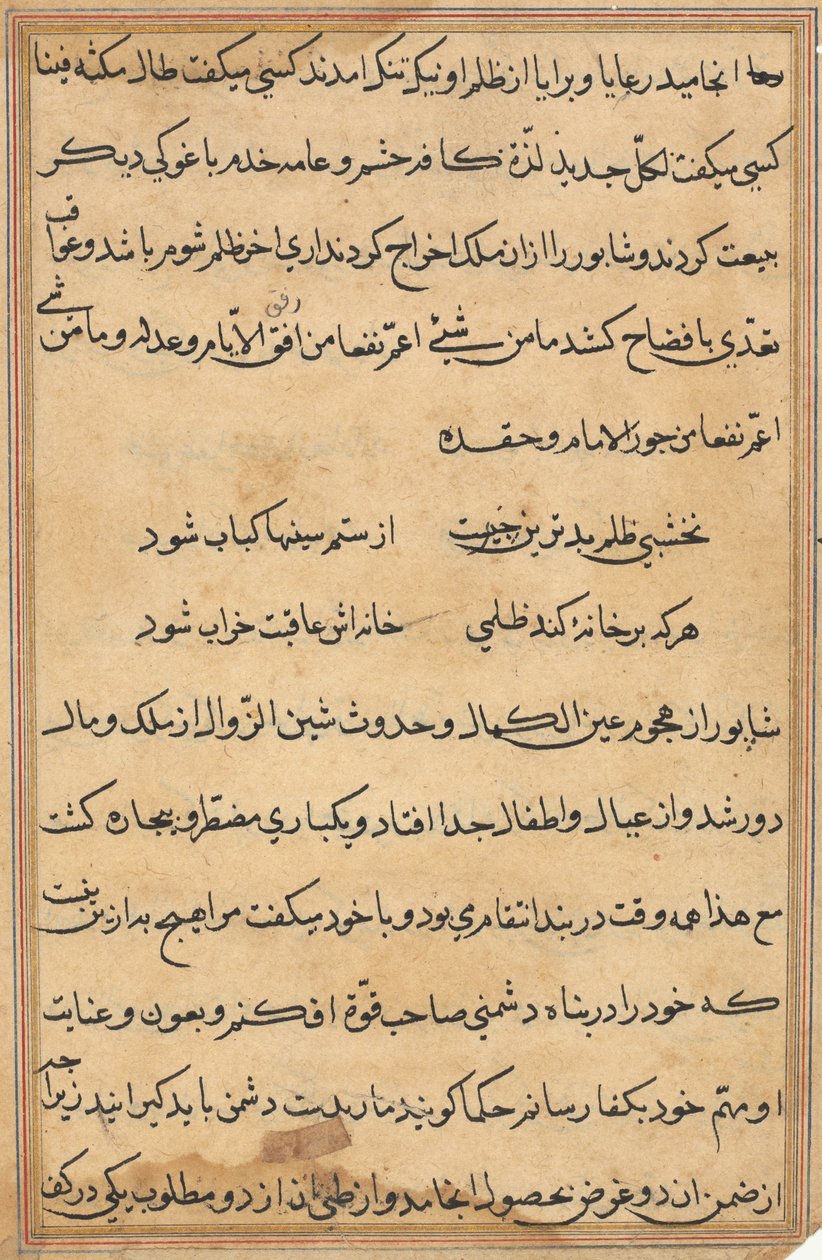 انجامید رعایا و برایا از ظلم او نیک تنک امدند کسی میکفت طال مکثه فینا
کسی میکفت لکلّ جدیذ لذّة کافه حشم و عامه خدم با غوکی دیکر
بیعت کردند و شابور را ازان ملک اخراج کردند اری اخر ظلم شوم باشد و عواقب
تعدّی بافضاح کشد ما من شیئ اعمّ نفعا من افق الایّام و عدله و ما من شیء
رفق
اعمّ نفعا من جور الامام و حقده
نخشبی ظلم بدترین از ستم سینها کباب شود
هرکه بر خانهٔ کند ظلمی خانه اش عاقبت خراب شود
شاپور از هجوم عین الکمال و حدوث شین الزّوال از ملک و مال
دور شد و از عیال و اطفال جدا افتاد و یکباری مضطرّ و بیجاره کشت
مع هذا همه وقت در بند انتقام می بود و با خود میکفت مرا هیج به ازین نیست
که خود را در بناه دشمنی صاحب قوّة افکنم و بعون و عنایت
او مهمّ خود بکفا رسانم حکما کویند مار بدست دشمن باید کیرانید زیراجه
از ضمن ان دو غرض بحصول انجامد و از طی ان از دو مطلوب یکی در کف